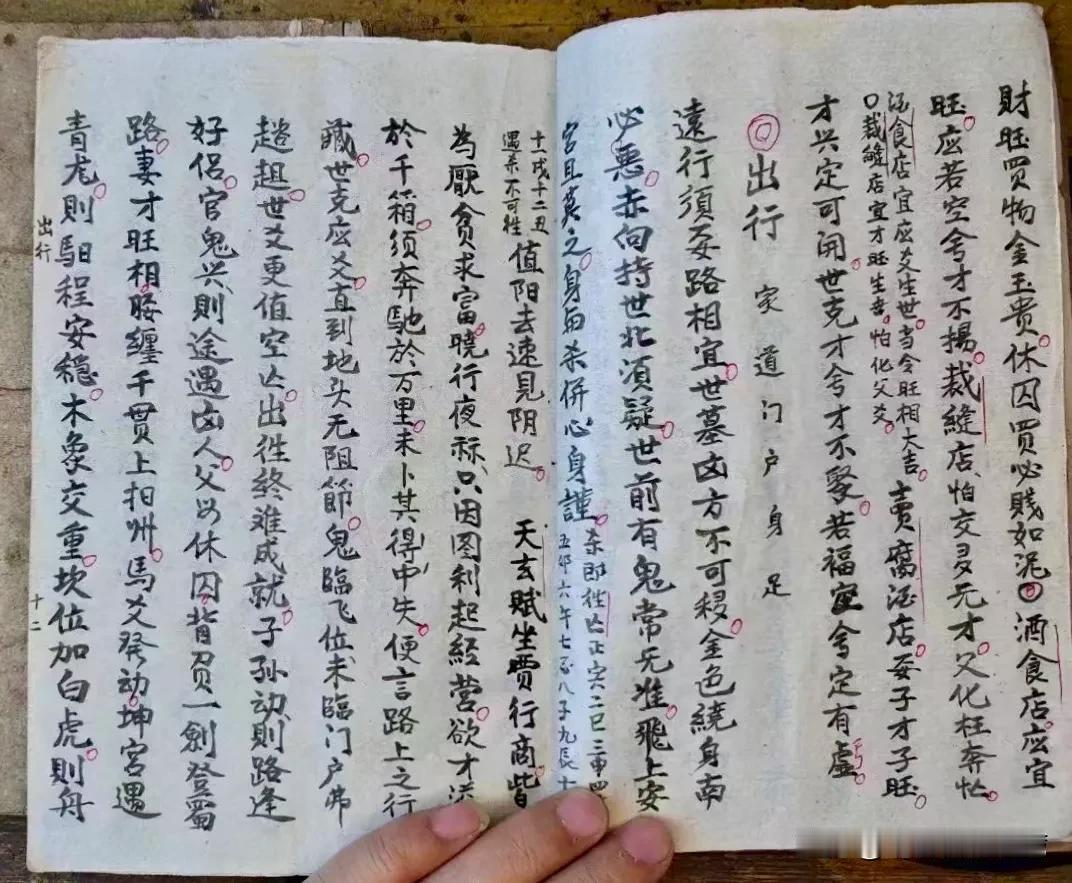 財旺買物金玉贵休囚買必賤如泥酒食店应宜
旺应若空兮才不揚裁縫店怕交多无才父化枉奔忙
酒食店宜应爻生世当令旺相大吉
裁縫店宜才旺生吾怕化父爻
賣腐酒店妄子才子旺
才兴定可開世克才兮才不愛若福空兮定有虛
出行 家道门户身足
遠行須妄路相宜世墓凶方不可移金色繞身南
必惡赤向持世北須疑世前有鬼常无准飛上安
宫且莫之身自杀併心身謹
杀即往亡正寅二巳三申四
五卯六午七酉八子九辰十
十一戌十二丑
遇杀不可往
值阳去速見阴迟 天玄赋坐賈行商皆
為厭貧求富曉行夜称只因图利起經营欲才流
於千箱須奔馳於万里未卜其得中失便言路上之行
藏世克应爻直到地头无阻節鬼臨飞位未臨门户弗
趑趄世爻更值空亡出往終难成就子孫動則路逢
好侣官鬼兴則途遇凶人父以休囚背負一劍登蜀
路妻才旺相腰纏千贯上相州馬爻発动坤宫遇
青龙則馹程安穩木象交重坎位加白虎則舟
出行
十二